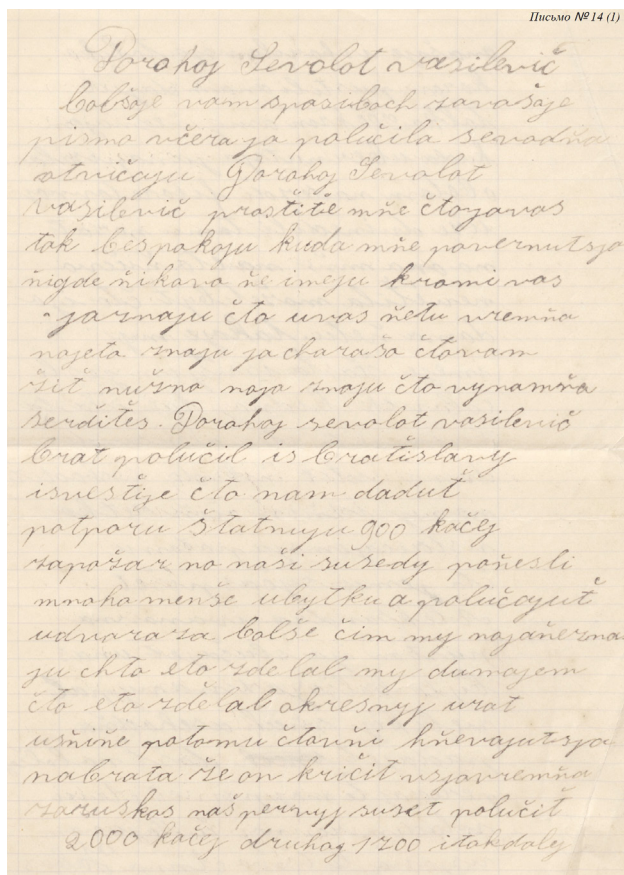 Письмо № 14 (1)
Dorahoj Sevolot vasilevič
bolšoje vam spasiboch zavašoje
pismo včera ja polučila sevodňa
otvičaju Dorahoj Sevolot
vasilevič prostitě mňe čtojavas
tak bespokoju kuda mňe povernutsja
ňigde ňikavo ňe imeju kromi vas
jaznaju čto uvas ňetu vremňa
najeto znaju ja charašo čtovam
žit nužno noja znaju čto vynamňa
serditěs. Dorahoj sevolot vasilevič
brat polučil is bratislavy
isvestije čto nam daduť
potporu štatnuju 900 kačej
zapožar no naši susedy poňesli
mnoho menše ubytku a polučajuť
udvaraza bolše čim my nojaňezna
ju chto eto zdělal my dumajem
čto eto zdělal okresnyj urat
usňiňe potomu čtovňi hňevajutsja
nabrata že on kričit vsjovremňa
zaruskos naš pervyj suset polučit
2000 kačej druhoj 1700 itakdalej